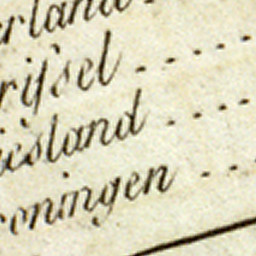 erland -
rijsel - - - - -
iesland - - - -
roningen - - -